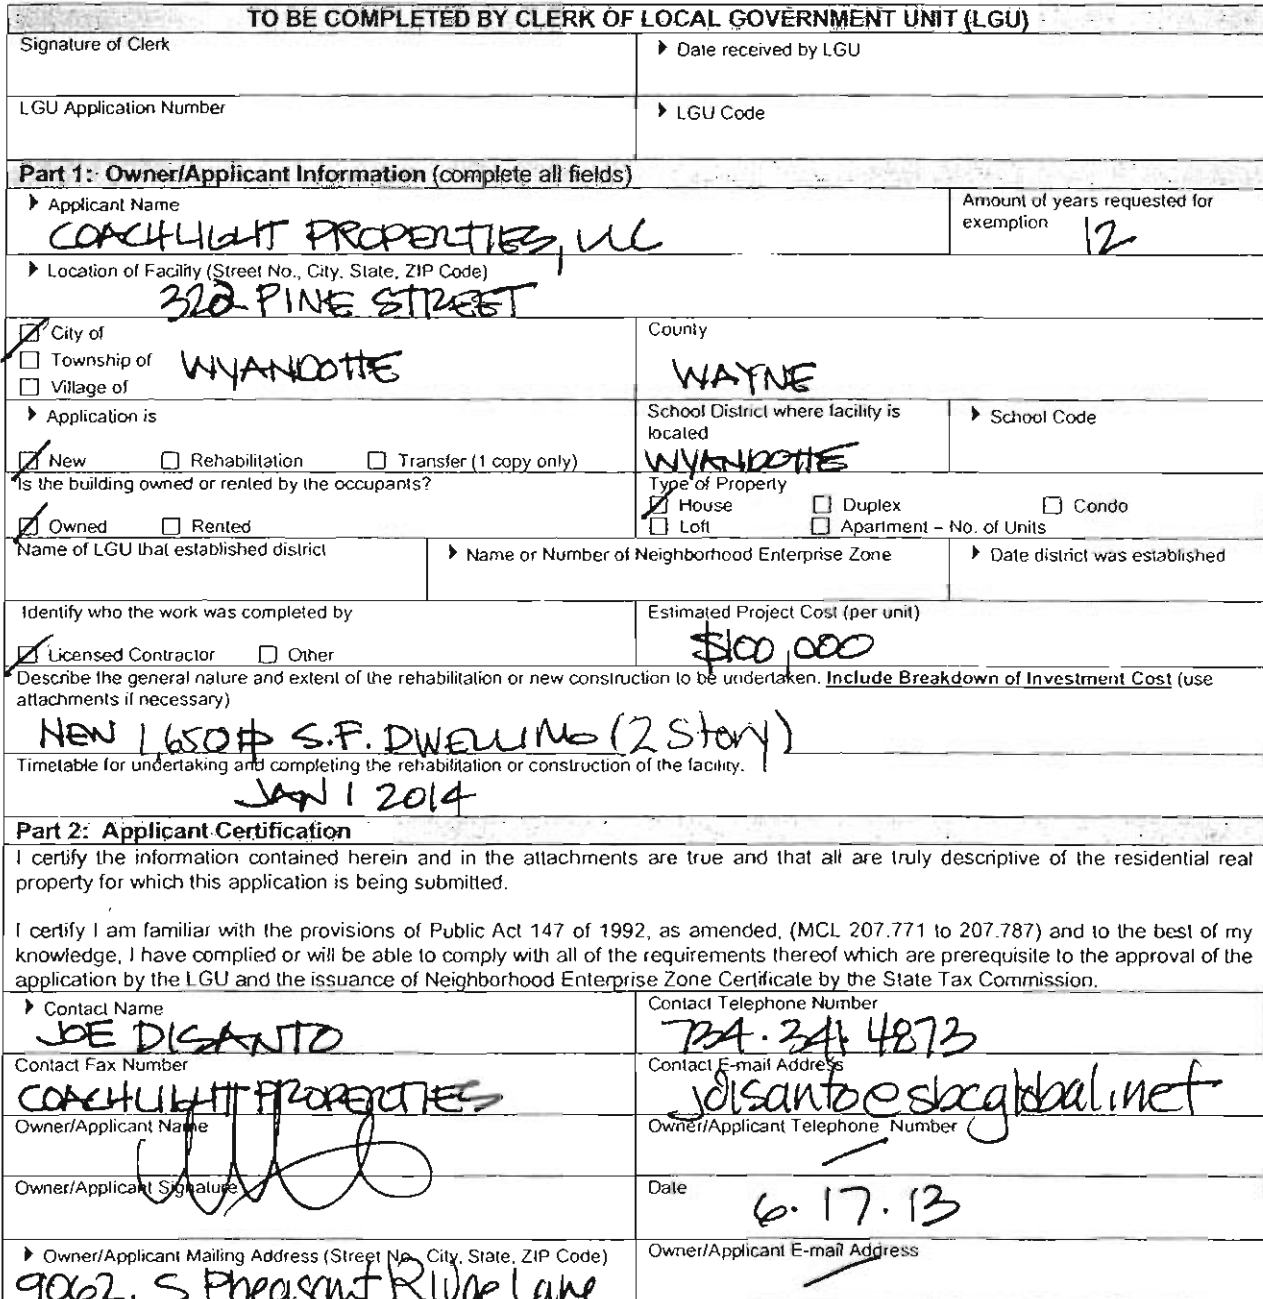 TO BE COMPLETED BY CLERK OF LOCAL GOVERNMENT UNIT (LGU)
Signature of Clerk
Date received by LGU
LGU Application Number
LGU Code
Part 1: Owner/Applicant Information (complete all fields)
Applicant Name
COACHLIGHT PROPERTIES, LLC
Amount of years requested for
exemption 12
Location of Facility (Street No., City, State, ZIP Code)
322 PINE STREET
City of
Township of WYANDOTTE
Village of
County
WAYNE
Application is
New Rehabilitation Transfer (1 copy only)
School District where facility is
located
WYANDOTTE
School Code
Is the building owned or rented by the occupants?
Owned Rented
Type of Property
House Duplex Condo
Loft Apartment – No. of Units
Name of LGU that established district
Name or Number of Neighborhood Enterprise Zone
Date district was established
Identify who the work was completed by
Licensed Contractor Other
Estimated Project Cost (per unit)
$100,000
Describe the general nature and extent of the rehabilitation or new construction to be undertaken. Include Breakdown of Investment Cost (use
attachments if necessary)
NEW 1,650 S.F. DWELLING (2 Story)
Timetable for undertaking and completing the rehabilitation or construction of the facility.
JAN 1 2014
Part 2: Applicant Certification
I certify the information contained herein and in the attachments are true and that all are truly descriptive of the residential real
property for which this application is being submitted.
I certify I am familiar with the provisions of Public Act 147 of 1992, as amended, (MCL 207.771 to 207.787) and to the best of my
knowledge, I have complied or will be able to comply with all of the requirements thereof which are prerequisite to the approval of the
application by the LGU and the issuance of Neighborhood Enterprise Zone Certificate by the State Tax Commission.
Contact Name
JOE DISANTO
Contact Telephone Number
734.341.4873
Contact Fax Number
COACHLIGHT PROPERTIES
Contact E-mail Address
jdisanto@sbcglobal.net
Owner/Applicant Name
Owner/Applicant Telephone Number
Owner/Applicant Signature
Date
6.17.13
Owner/Applicant Mailing Address (Street No., City, State, ZIP Code)
9062. S Pheasant Ridge Lane
Owner/Applicant E-mail Address